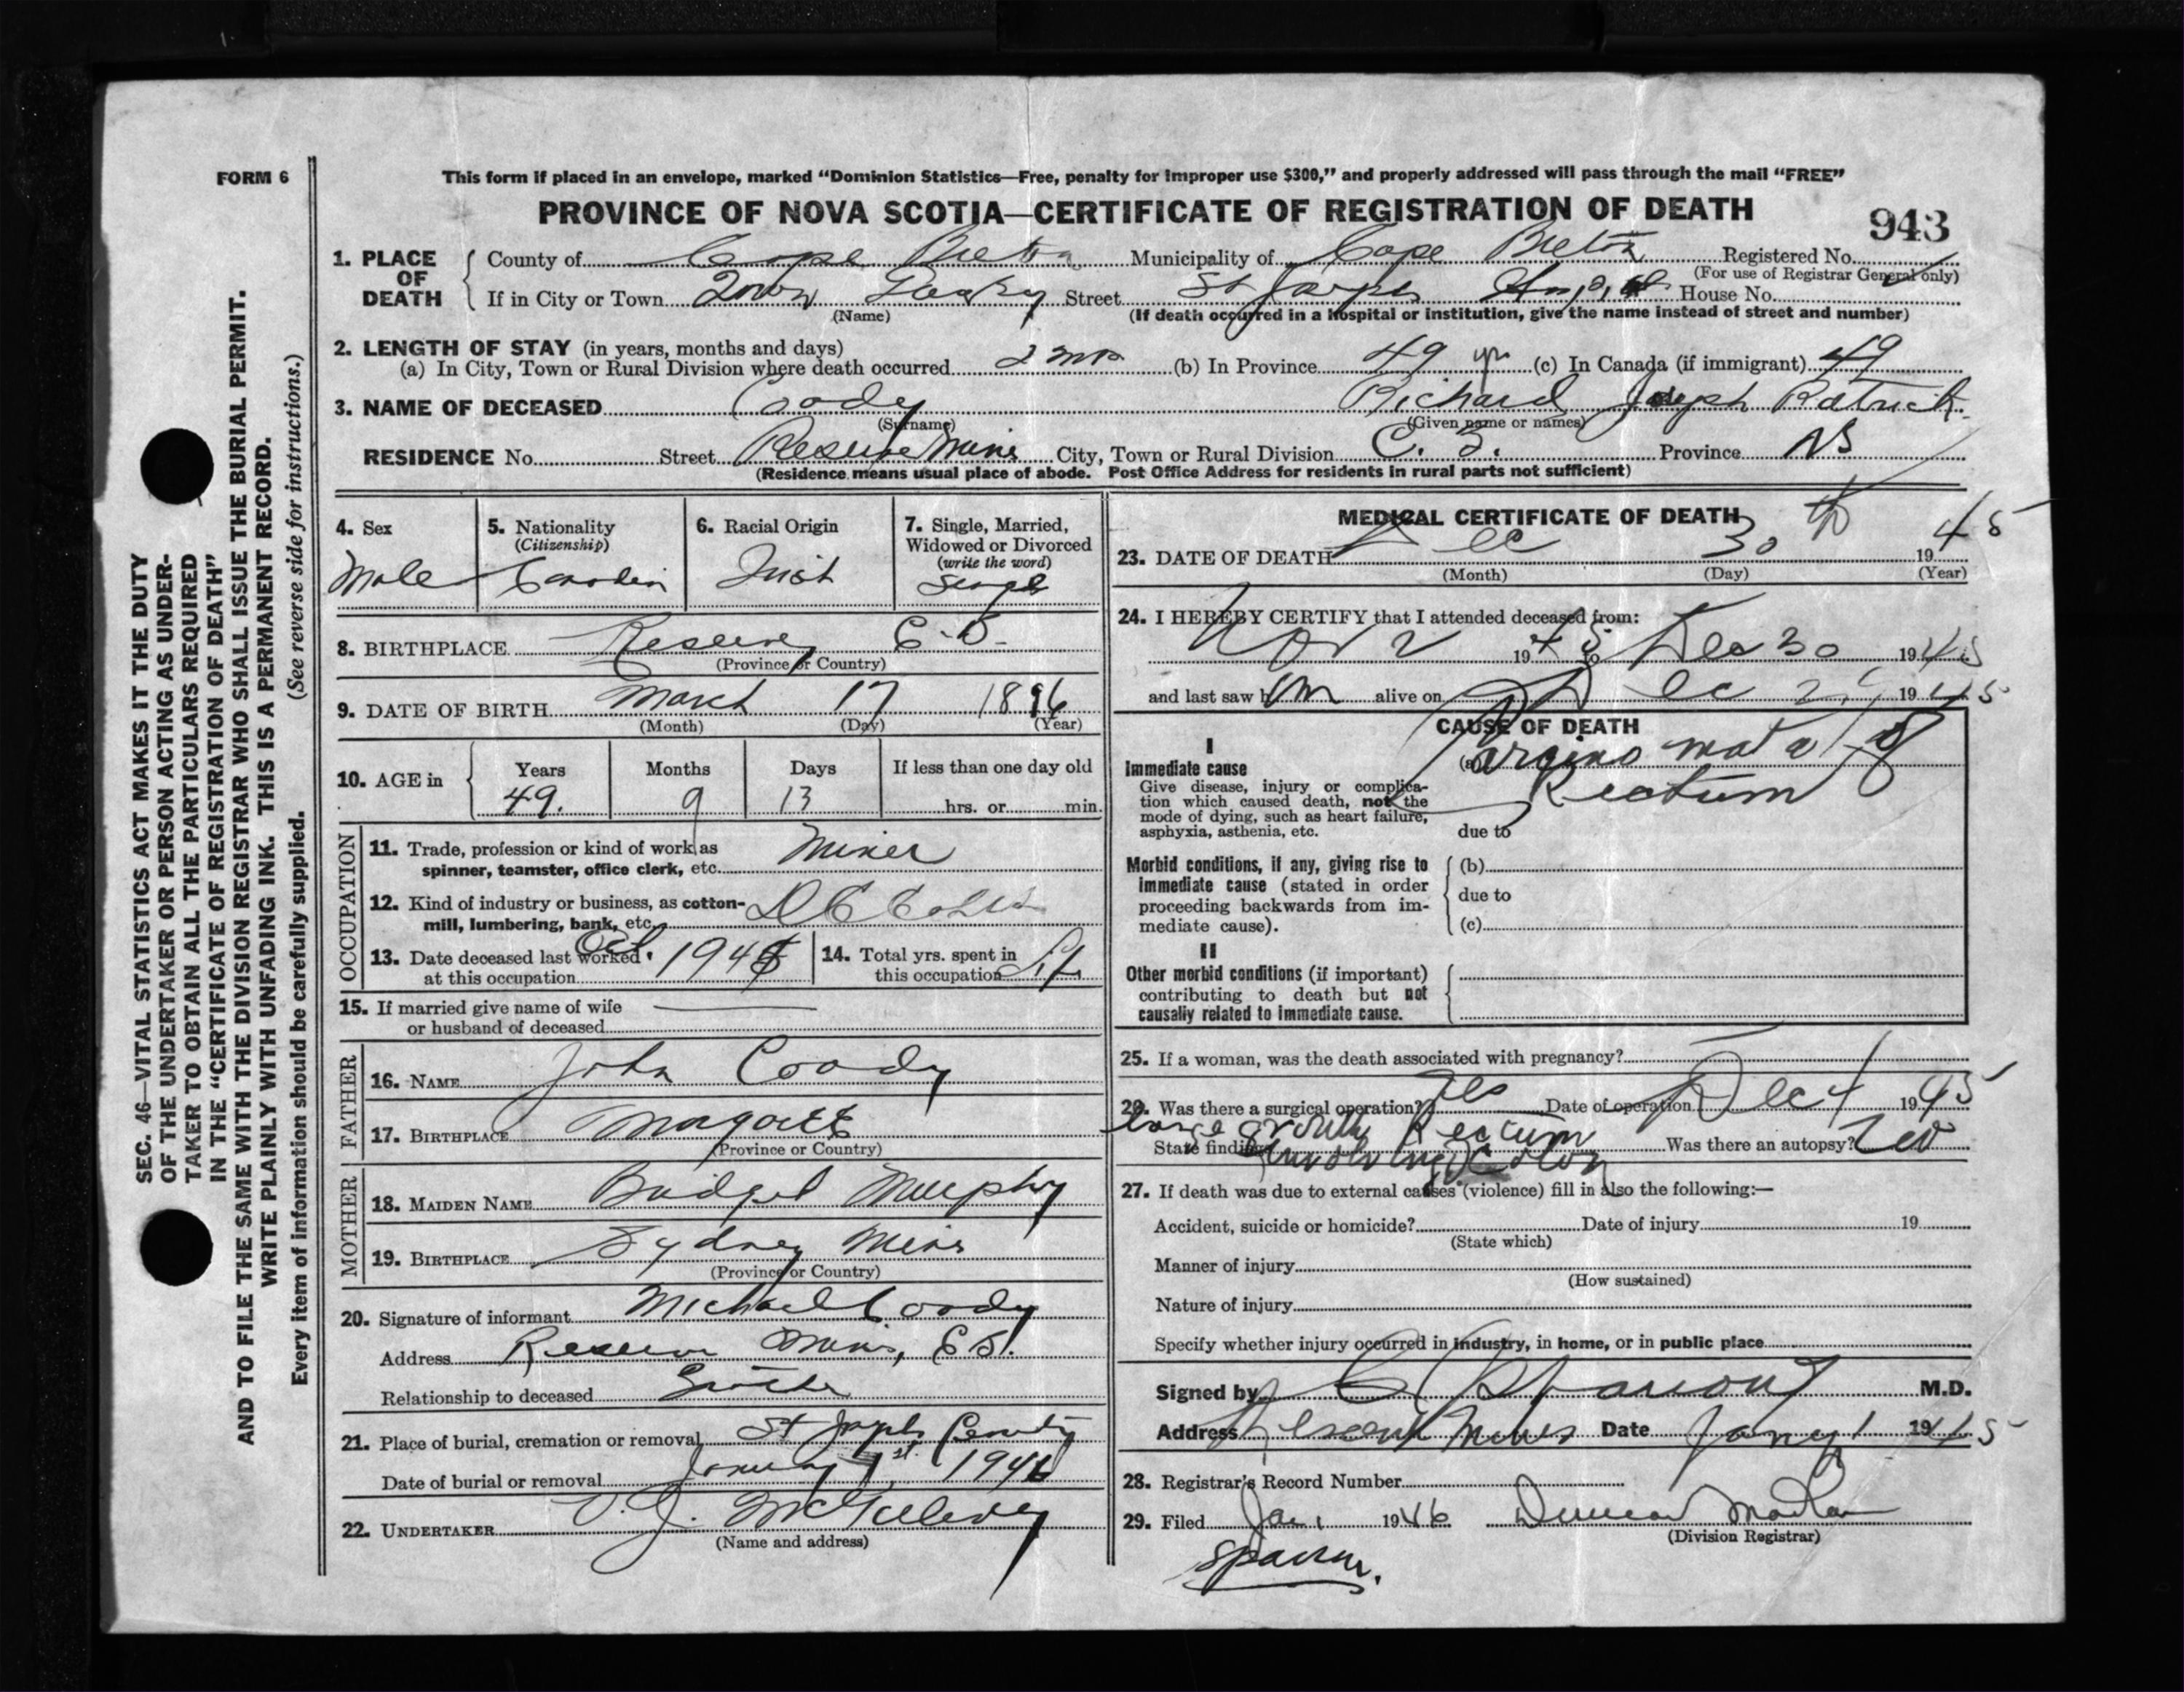 FORM 6
This form if placed in an envelope, marked “Dominion Statistics—Free, penalty for improper use $300,” and properly addressed will pass through the mail “FREE”
PROVINCE OF NOVA SCOTIA—CERTIFICATE OF REGISTRATION OF DEATH
943
1. PLACE OF DEATH
County of Cape Breton Municipality of Cape Breton Registered No.
(For use of Registrar General only)
If in City or Town Town Street St Joseph House No.
(Name) (If death occurred in a hospital or institution, give the name instead of street and number)
2. LENGTH OF STAY (in years, months and days)
(a) In City, Town or Rural Division where death occurred 2 mos (b) In Province 49 yr (c) In Canada (if immigrant) 49
3. NAME OF DECEASED Coady Richard Joseph Patrick
(Surname) (Given name or names)
RESIDENCE No. Street Reserve Mines City, Town or Rural Division C. B. Province NS
(Residence means usual place of abode. Post Office Address for residents in rural parts not sufficient)
4. Sex
Male
5. Nationality
(Citizenship)
6. Racial Origin
Irish
7. Single, Married,
Widowed or Divorced
(write the word)
Single
8. BIRTHPLACE Reserve C.B.
(Province or Country)
9. DATE OF BIRTH March 17 1896
(Month) (Day) (Year)
10. AGE in
Years Months Days If less than one day old
49. 9 13 hrs. or min.
OCCUPATION
11. Trade, profession or kind of work as Miner
spinner, teamster, office clerk, etc.
12. Kind of industry or business, as cotton-
mill, lumbering, bank, etc.
13. Date deceased last worked Oct. 1945
at this occupation
14. Total yrs. spent in
this occupation
15. If married give name of wife —
or husband of deceased
FATHER
16. NAME John Coady
17. BIRTHPLACE Margaree
(Province or Country)
MOTHER
18. MAIDEN NAME Bridget Murphy
19. BIRTHPLACE Sydney Mines
(Province or Country)
20. Signature of informant Michael Coady
Address Reserve Mines, C.B.
Relationship to deceased
21. Place of burial, cremation or removal St Joseph
Date of burial or removal January 1st 1946
22. UNDERTAKER
(Name and address)
MEDICAL CERTIFICATE OF DEATH
23. DATE OF DEATH Dec 30 th 1945
(Month) (Day) (Year)
24. I HEREBY CERTIFY that I attended deceased from:
Nov 2 1945 to Dec 30 1945
and last saw him alive on Dec 1945
CAUSE OF DEATH
I
Immediate cause
Give disease, injury or complica-
tion which caused death, not the
mode of dying, such as heart failure,
asphyxia, asthenia, etc.
(a) Carcinomata of
Rectum
due to
Morbid conditions, if any, giving rise to
immediate cause (stated in order
proceeding backwards from im-
mediate cause).
(b)
due to
(c)
II
Other morbid conditions (if important)
contributing to death but not
causally related to immediate cause.
25. If a woman, was the death associated with pregnancy?
26. Was there a surgical operation? Yes Date of operation Dec 4 1945
large growth Rectum
State findings involving Colon Was there an autopsy? no
27. If death was due to external causes (violence) fill in also the following:—
Accident, suicide or homicide? Date of injury 19
(State which)
Manner of injury
(How sustained)
Nature of injury
Specify whether injury occurred in industry, in home, or in public place
Signed by M.D.
Address Reserve Mines Date Jany 1 1945
28. Registrar's Record Number
29. Filed Jan 1 1946 Duncan
(Division Registrar)
SEC. 46—VITAL STATISTICS ACT MAKES IT THE DUTY
OF THE UNDERTAKER OR PERSON ACTING AS UNDER-
TAKER TO OBTAIN ALL THE PARTICULARS REQUIRED
IN THE “CERTIFICATE OF REGISTRATION OF DEATH”
AND TO FILE THE SAME WITH THE DIVISION REGISTRAR WHO SHALL ISSUE THE BURIAL PERMIT.
WRITE PLAINLY WITH UNFADING INK. THIS IS A PERMANENT RECORD.
Every item of information should be carefully supplied. (See reverse side for instructions.)